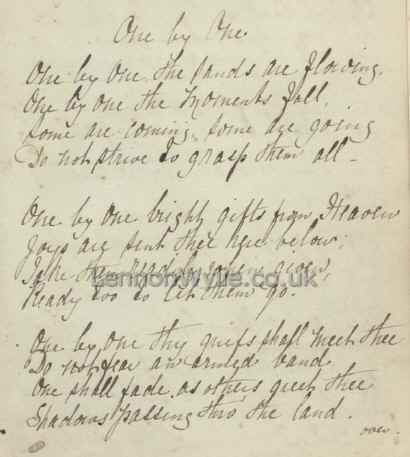 One by One
One by One the sands are flowing,
One by one the moments fall,
Some are coming, some are going
Do not strive to grasp them all -
One by One bright gifts from Heaven
Joys are sent thee here below;
Take them readily when given,
LennonWylie.co.uk
Ready too to let them go.
One by one thy griefs shall meet thee
Do not fear an armed band
One shall fade as others greet thee
Shadows passing thro' the land.
over.